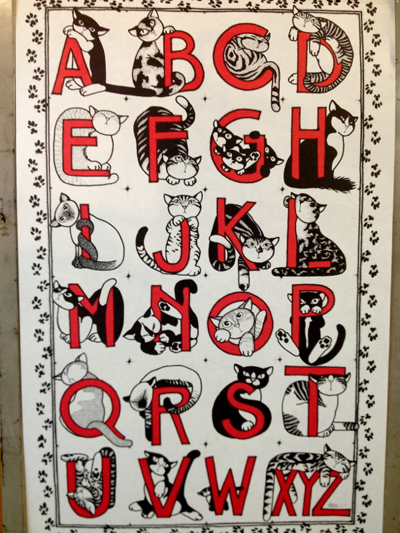 A B C D
E F G H
I J K L
M N O P
Q R S T
U V W XYZ